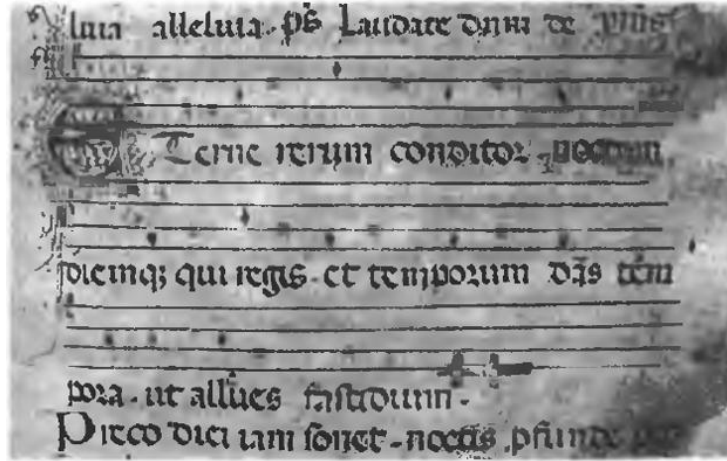 luia alleluia. ps̄ Laudate dnm de
Eterne rerum conditor. noctem
diemq; qui regis. et temporum das tem
pora. ut alleues fastidium.
Preco diei iam sonet. noctis pfunde